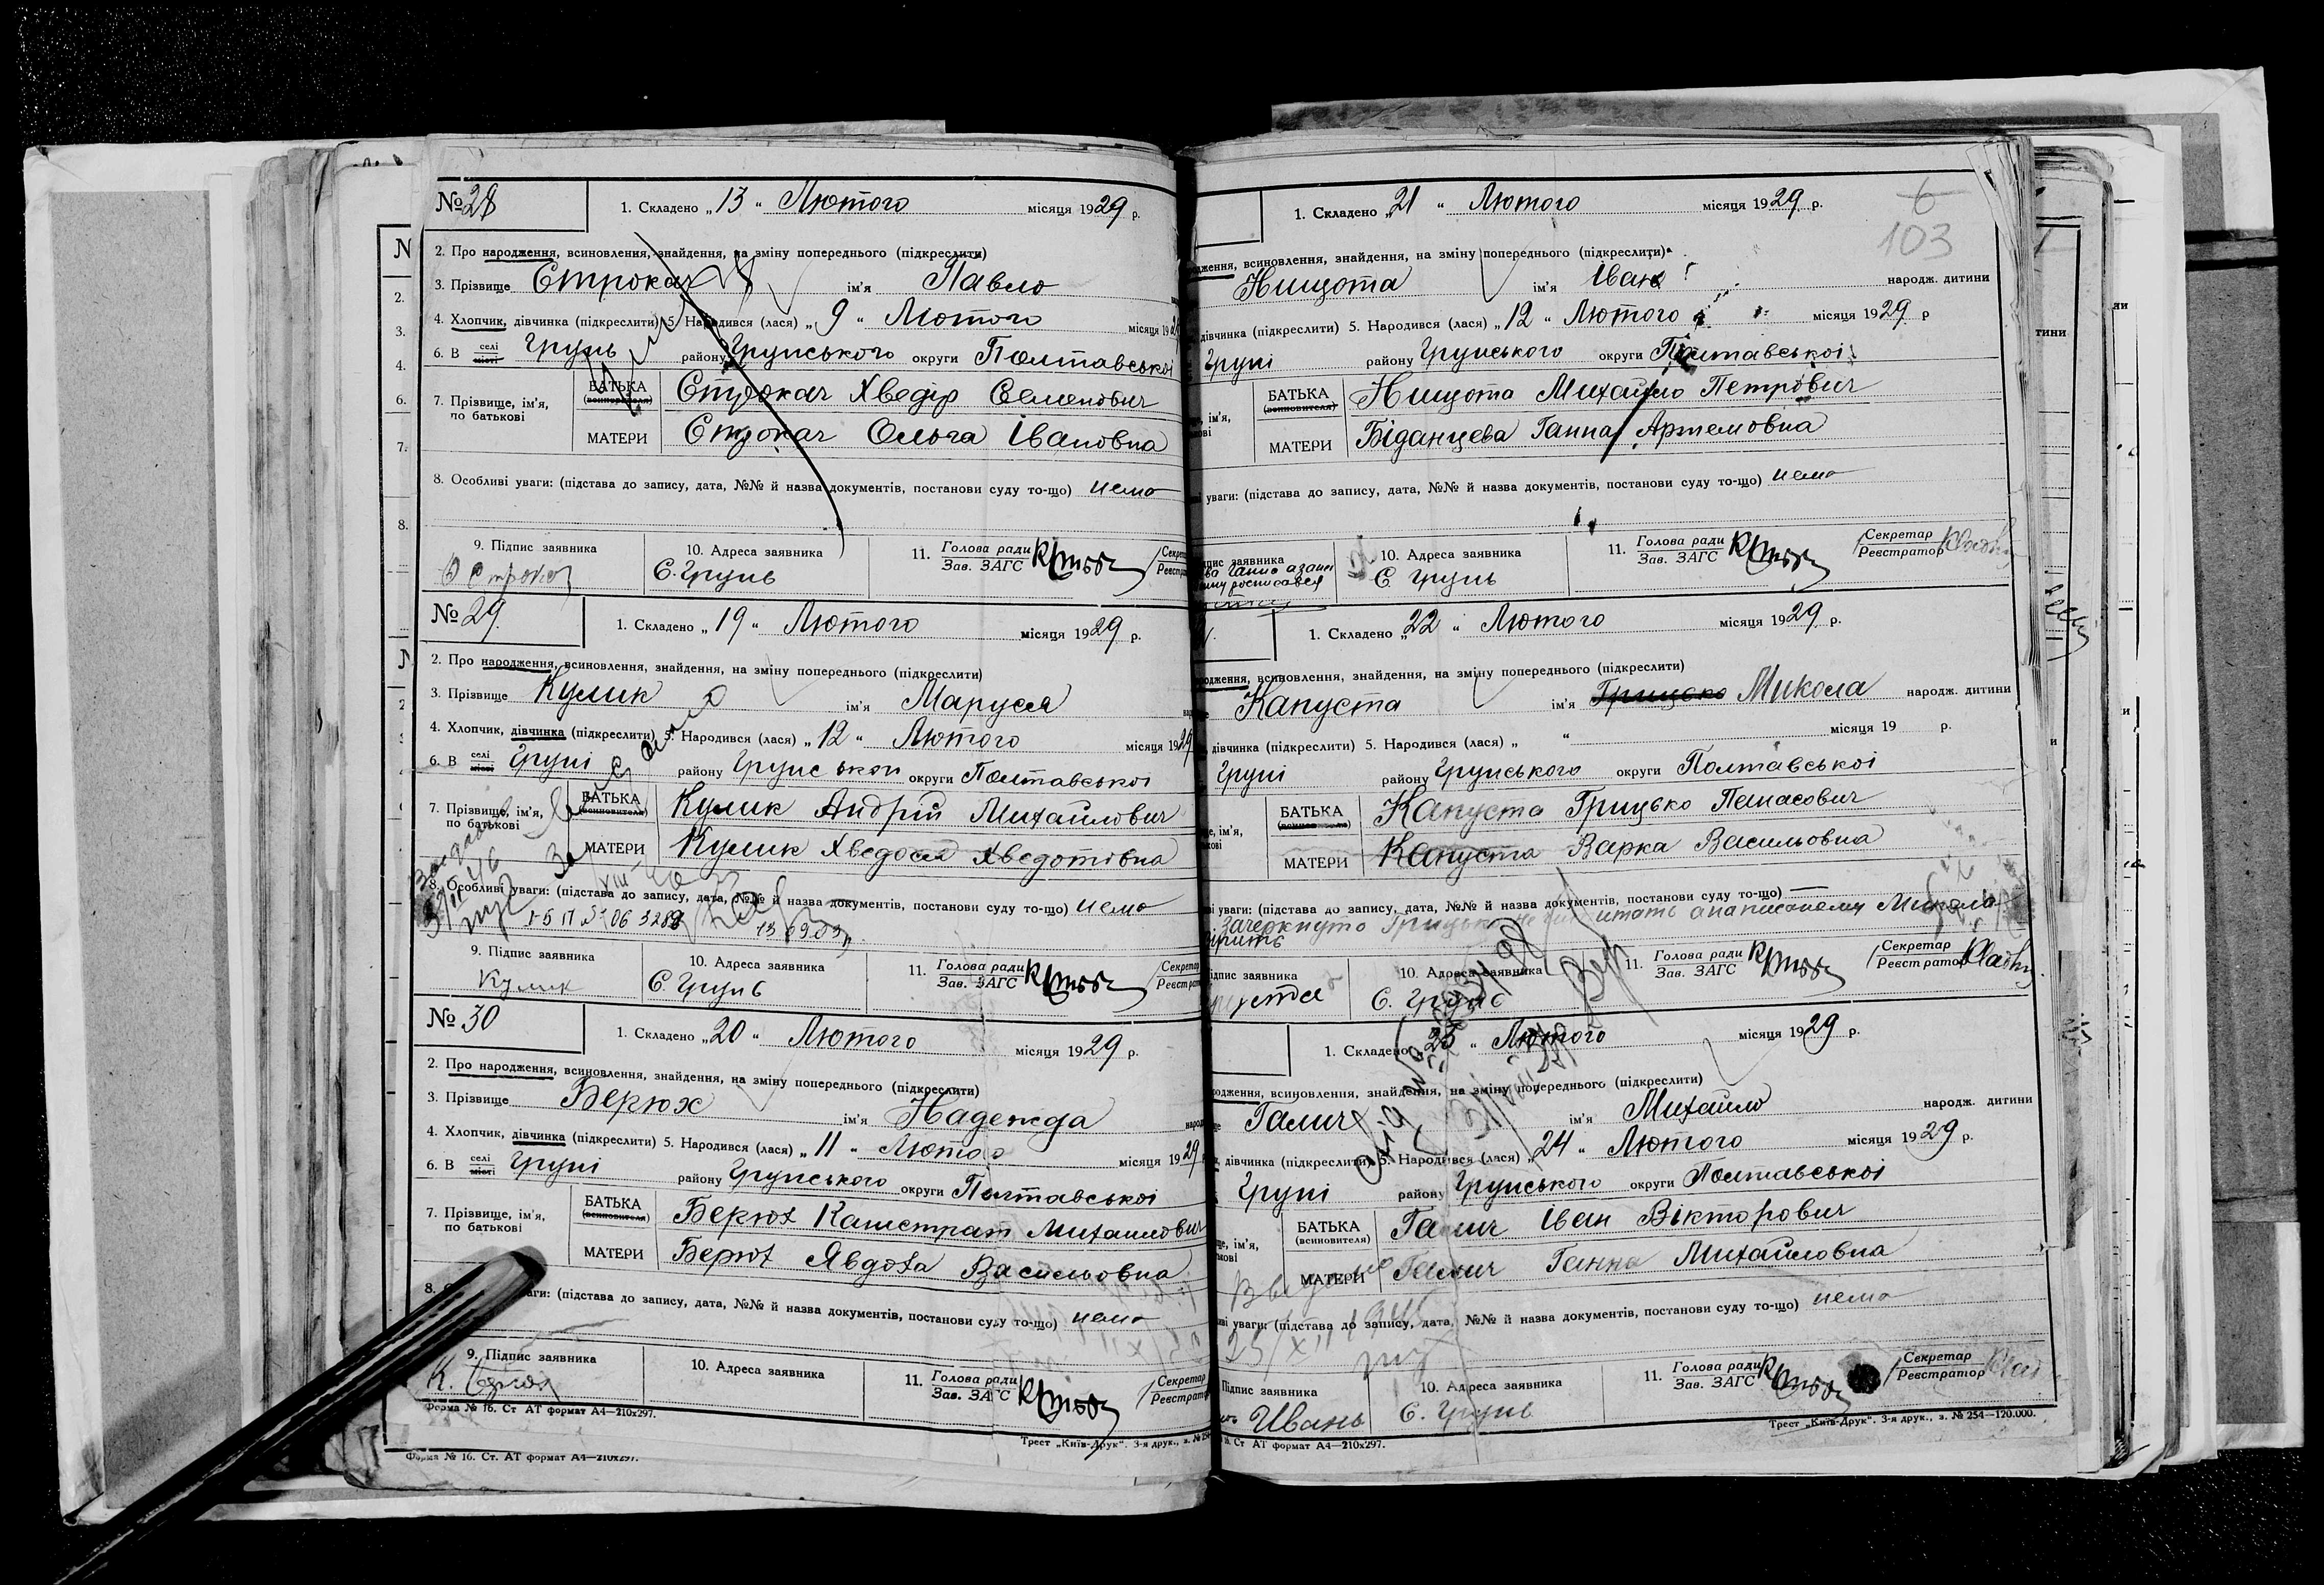 № 28
1. Складено „13“ Лютого місяця 1929 р.
2. Про народження, всиновлення, знайдення, на зміну попереднього (підкреслити)
3. Прізвище Строкач ім'я Павло
4. Хлопчик, дівчинка (підкреслити) 5. Народився (лася) „9“ Лютого місяця 19
6. В селі Грунь району Грунського округи Полтавської
7. Прізвище, ім'я, по батькові
БАТЬКА (всиновителя) Строкач Хведір Семенович
МАТЕРИ Строкач Ольга Івановна
8. Особливі уваги: (підстава до запису, дата, №№ й назва документів, постанови суду то-що) нема
9. Підпис заявника
10. Адреса заявника
С. Грунь
11. Голова ради
Зав. ЗАГС
№ 29
1. Складено „19“ Лютого місяця 1929 р.
2. Про народження, всиновлення, знайдення, на зміну попереднього (підкреслити)
3. Прізвище Кулик ім'я Маруся
4. Хлопчик, дівчинка (підкреслити) 5. Народився (лася) „12“ Лютого місяця 1929
6. В селі місті Груні району Грунської округи Полтавської
7. Прізвище, ім'я, по батькові
БАТЬКА (всиновителя) Кулик Андрій Михайлович
МАТЕРИ Кулик Хведося Хведотівна
8. Особливі уваги: (підстава до запису, дата, №№ й назва документів, постанови суду то-що) нема
9. Підпис заявника
Кулик
10. Адреса заявника
С. Грунь
11. Голова ради
Зав. ЗАГС
№ 30
1. Складено „20“ Лютого місяця 1929 р.
2. Про народження, всиновлення, знайдення, на зміну попереднього (підкреслити)
3. Прізвище Берюх ім'я Надежда
4. Хлопчик, дівчинка (підкреслити) 5. Народився (лася) „11“ Лютого місяця 1929
6. В селі місті Груні району Грунського округи Полтавської
7. Прізвище, ім'я, по батькові
БАТЬКА (всиновителя) Берюх Калистрат Михайлович
МАТЕРИ Берюх Явдоха Васильовна
(підстава до запису, дата, №№ й назва документів, постанови суду то-що) нема
9. Підпис заявника
10. Адреса заявника
11. Голова ради
Зав. ЗАГС
Форма № 16. Ст АТ формат А4—210х297.
Трест „Київ-Друк“. 3-я друк.,
Форма № 16. Ст. АТ формат А4—210х297.
103
1. Складено „21“ Лютого місяця 1929 р.
всиновлення, знайдення, на зміну попереднього (підкреслити)
Нищота ім'я Іван народж. дитини
дівчинка (підкреслити) 5. Народився (лася) „12“ Лютого місяця 1929 р
Груні району Грунського округи Полтавської
БАТЬКА (всиновителя) Нищота Михайло Петрович
МАТЕРИ Біданцева Ганна Артемовна
уваги: (підстава до запису, дата, №№ й назва документів, постанови суду то-що) нема
10. Адреса заявника
С. Грунь
11. Голова ради
Зав. ЗАГС
Секретар
Реєстратор
1. Складено „22“ Лютого місяця 1929 р.
всиновлення, знайдення, на зміну попереднього (підкреслити)
Капуста ім'я Грицько Микола народж. дитини
дівчинка (підкреслити) 5. Народився (лася) „ “ місяця 19 р.
Груні району Грунського округи Полтавської
БАТЬКА (всиновителя) Капуста Грицько Панасович
МАТЕРИ Капуста Варка Васильовна
уваги: (підстава до запису, дата, №№ й назва документів, постанови суду то-що)
Зачеркнуто Грицько не читать а написаному Микола
вірить
10. Адреса заявника
С. Грунь
11. Голова ради
Зав. ЗАГС
Секретар
Реєстратор
1. Складено „25“ Лютого місяця 1929 р.
всиновлення, знайдення, на зміну попереднього (підкреслити)
Галич ім'я Михайло народж. дитини
дівчинка (підкреслити) 5. Народився (лася) „24“ Лютого місяця 1929 р.
Груні району Грунського округи Полтавської
БАТЬКА (всиновителя) Галич Іван Вікторович
МАТЕРИ Галич Ганна Михайловна
уваги: (підстава до запису, дата, №№ й назва документів, постанови суду то-що) нема
Підпис заявника
Ивань
10. Адреса заявника
С. Грунь
11. Голова ради
Зав. ЗАГС
Секретар
Реєстратор
Ст АТ формат А4—210х297.
Трест „Київ-Друк“. 3-я друк., з. № 254—120.000.